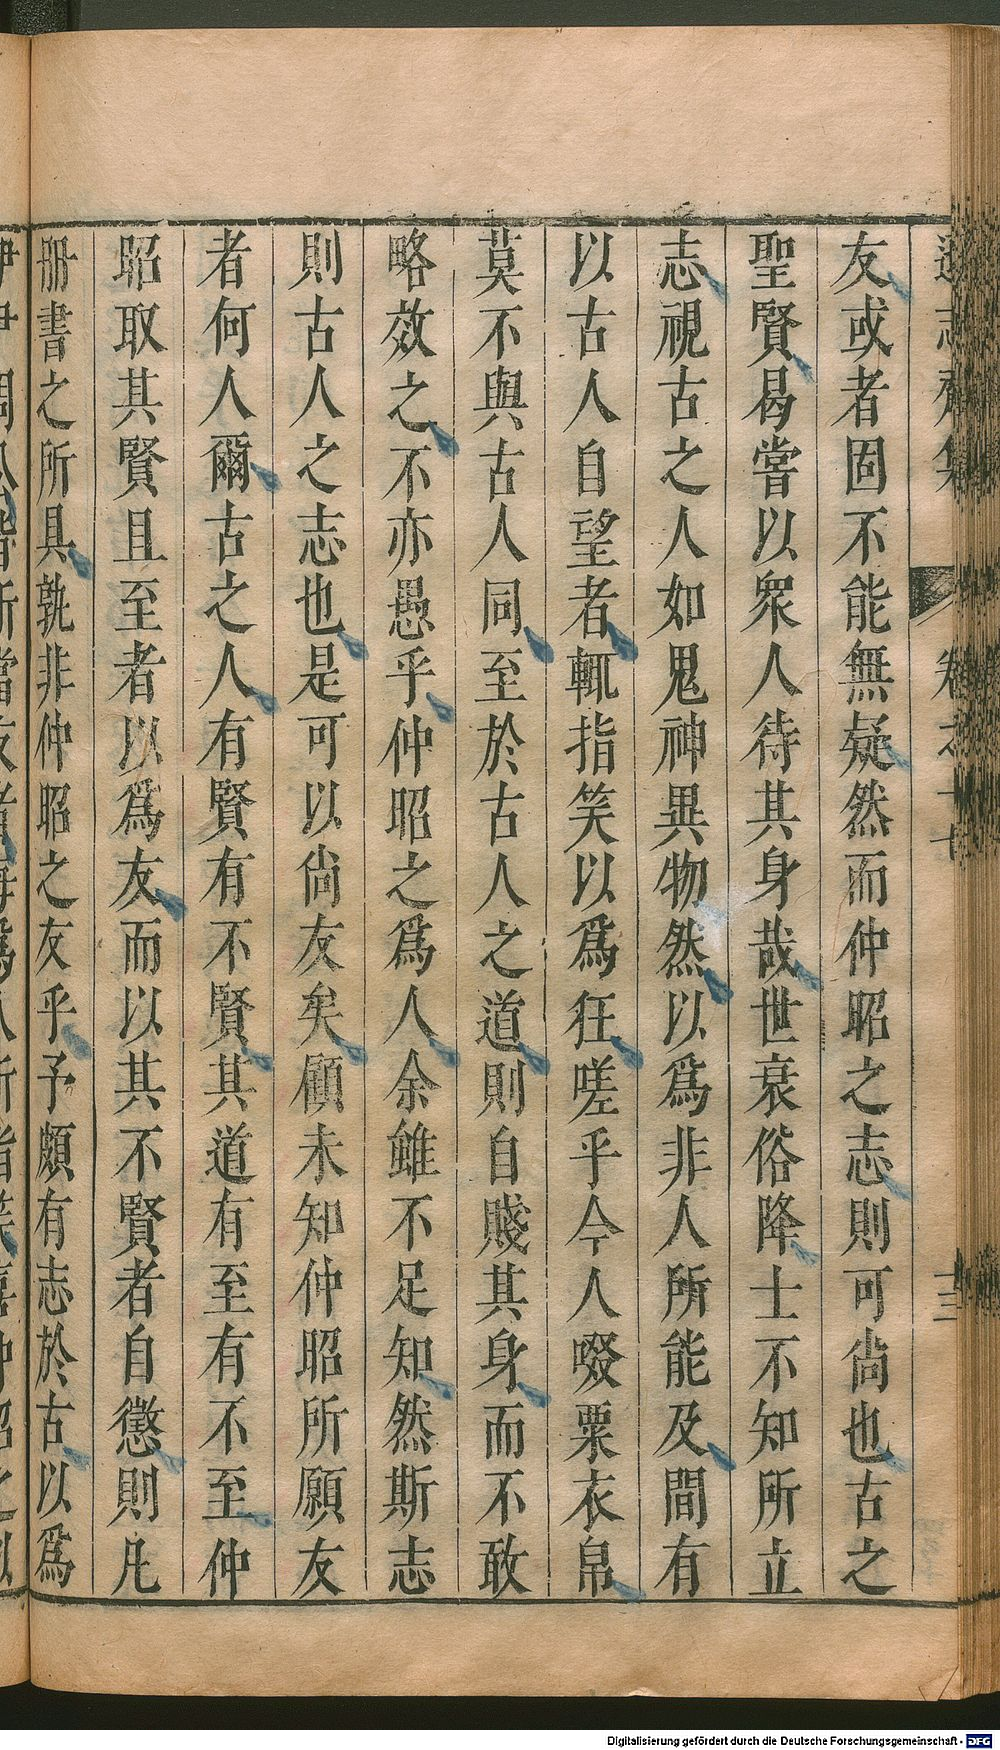 友或者固不能無疑然而仲昭之志則可尚也古之
聖賢曷嘗以衆人待其身哉世衰俗降士不知所立
志視古之人如鬼神異物然以爲非人所能及間有
以古人自望者輒指笑以爲狂嗟乎今人啜粟衣帛
莫不與古人同至於古人之道則自賤其身而不敢
略效之不亦愚乎仲昭之爲人余雖不足知然斯志
則古人之志也是可以尚友矣顧未知仲昭所願友
者何人爾古之人有賢有不賢其道有至有不至仲
昭取其賢且至者以爲友而以其不賢者自懲則凡
册書之所具孰非仲昭之友乎予頗有志於古以爲
Digitalisierung gefördert durch die Deutsche Forschungsgemeinschaft - DFG